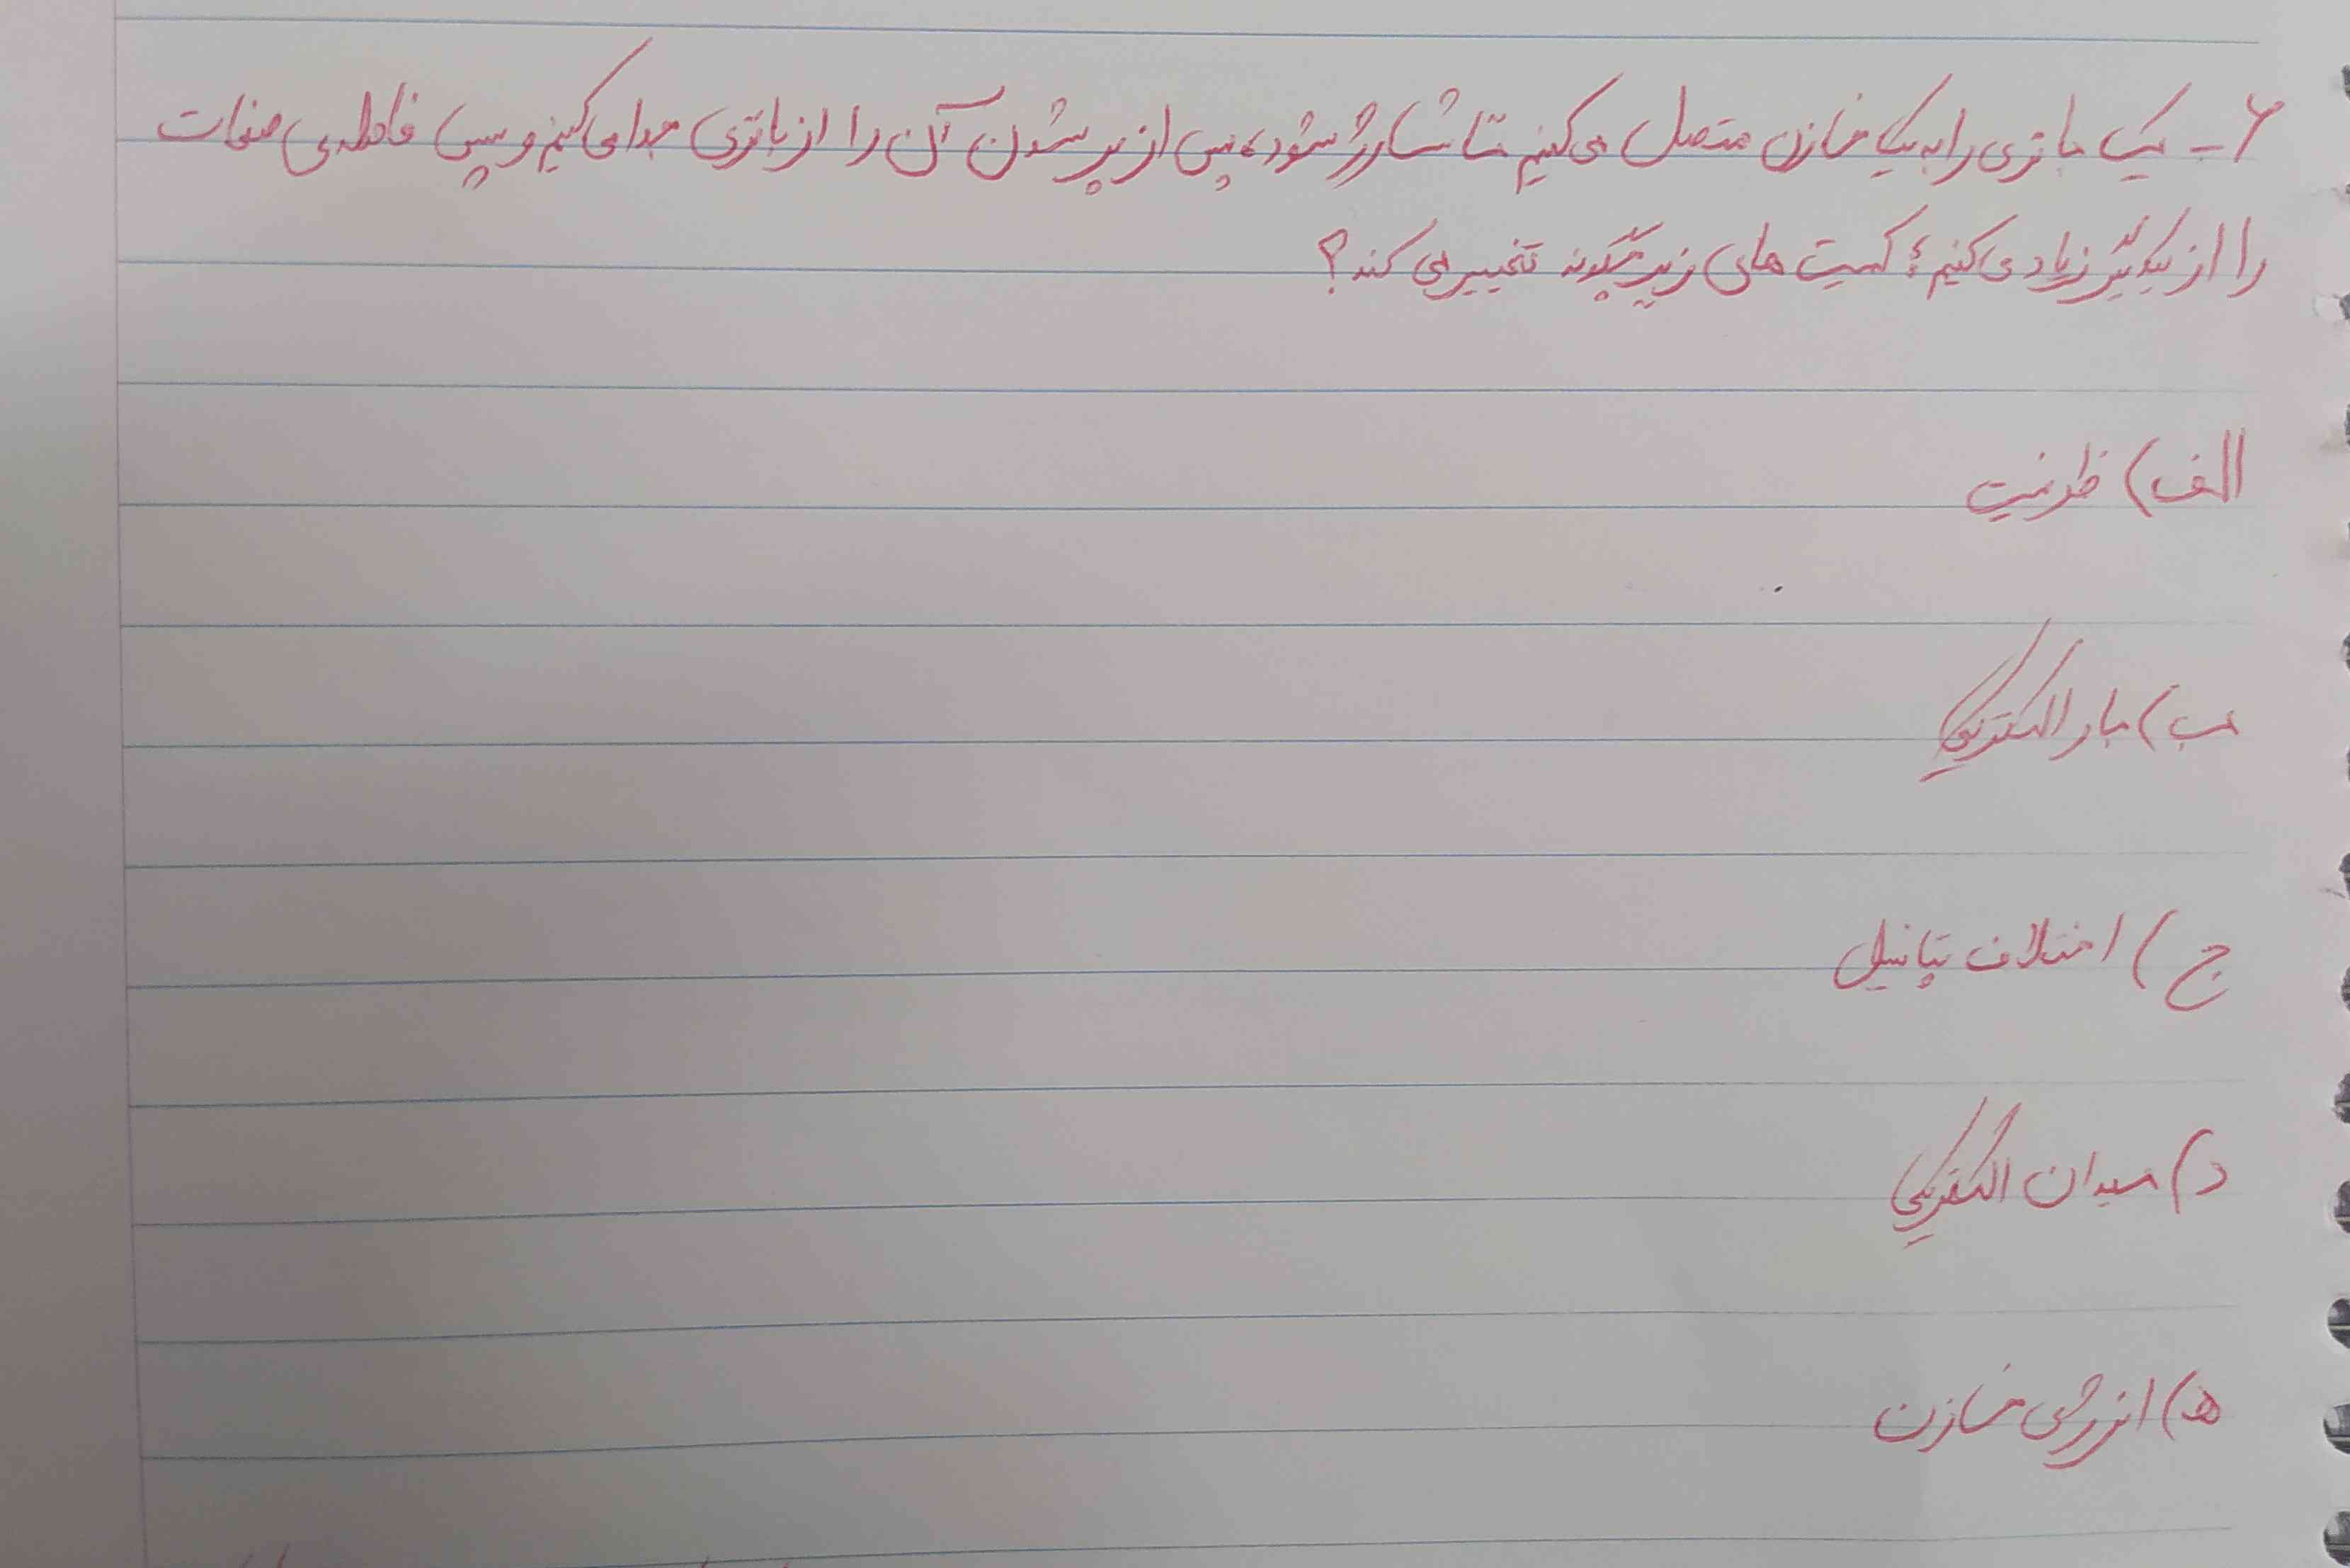 ۶- یک باتری را به یک خازن متصل می کنیم تا شارژ شود، پس از پر شدن آن را از باتری جدا می کنیم و سپس فاصله ی صفحات
را از یکدیگر زیاد می کنیم؛ کمیت های زیر چگونه تغییر می کند؟
الف) ظرفیت
ب) بار الکتریکی
ج) اختلاف پتانسیل
د) میدان الکتریکی
ه) انرژی خازن